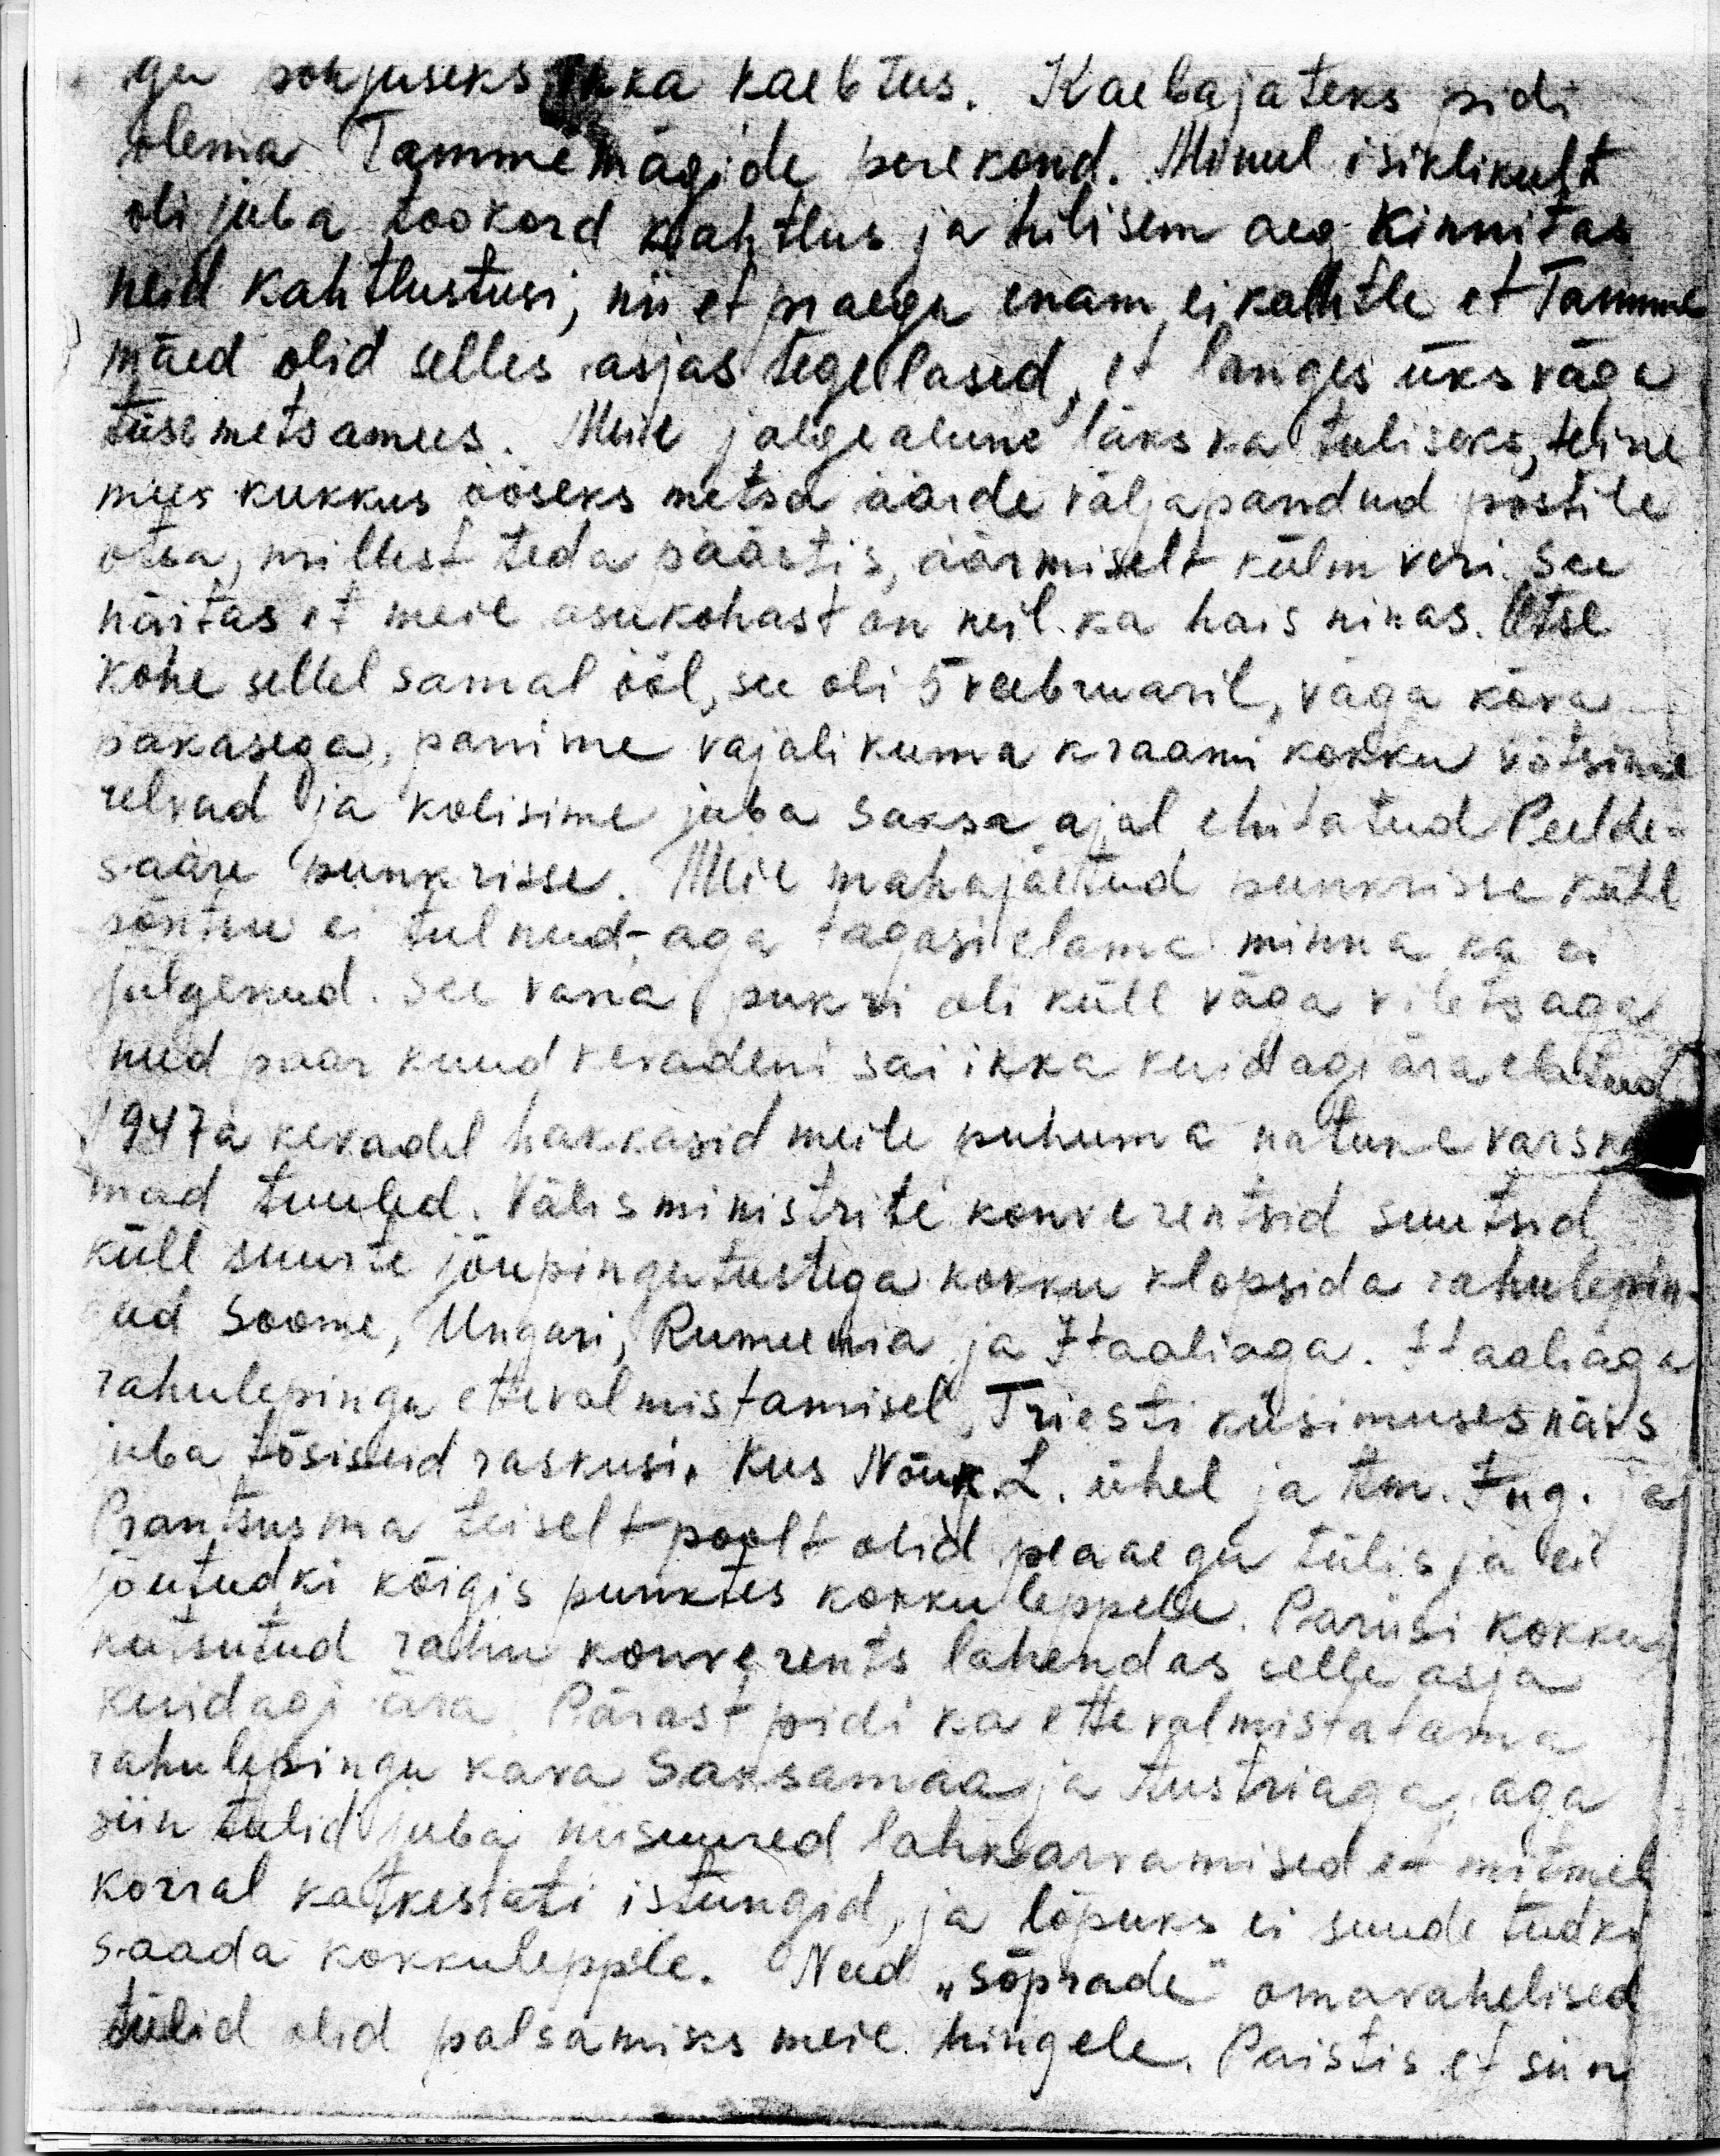 igu põhjuseks ikka kaebtus. Kaebajateks pidi
olema Tammemägide perekond. Minul isiklikult
oli juba tookord kahtlus ja hilisem aeg kinnitas
neid kahtlustusi, nii et praegu enam ei kahtle et Tamme
mäed olid selles asjas tegelased, et langes üks väga
tüse metsamees. Meie jalgealune läks ka tuliseks, teine
mees kukkus ööseks metsa äärde väljapandud postile
otsa, millest teda päästis, äärmiselt külm veri. See
näitas et meie asukohast on neil ka hais ninas. Otse
kohe sellel samal ööl, see oli 5 veebruaril, väga kõva
pakasega, panime vajalikuma kraami kokku võtsime
relvad ja kolisime juba saksa ajal ehitatud Peelde-
sääre punkrisse. Meie mahajäetud punkrisse küll
ei tulnud, aga tagasi elama minna ka ei
julgenud. See vana punkri oli küll väga vilets aga
need paar kuud kevadeni sai ikka kuidagi ära elatud
1947a kevadel hakkasid meile puhuma natuke värske
mad tuuled. Välisministrite konverentsid suutsid
küll suurte jõupingutustega kokku klopsida rahulepin-
gud Soome, Ungari, Rumeenia ja Itaaliaga. Itaaliaga
rahulepingu ettevalmistamisel, Triesti küsimuses näis
juba tõsiseid raskusi. Kus Nõuk.L. ühel ja Am. Ing. ja
Prantsusma teiselt poolt olid peaaegu tülis ja ei
jõutudki kõigis punktes kokkuleppele. Pariisi kokku
kutsutud rahu konverents lahendas selle asja
kuidagi ära. Pärast pidi ka ettevalmistatama
rahulepingu kava Saksamaa ja Austriaga, aga
siin tulid juba niisuured lahkarvamised et mitmel
korral katkestati istungid, ja lõpuks ei suude tudki
saada kokkuleppele. Need „sõprade" omavahelised
tülid olid palsamiks meie hingele. Paistis et siin